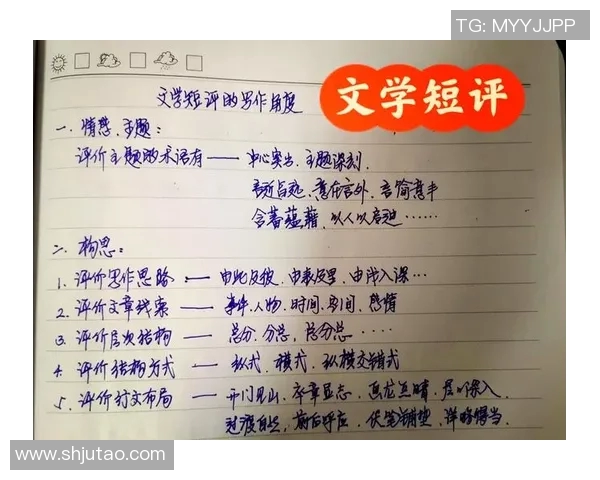 TG: MYYJJPP
文学短评
文学短评的写作角度
一、情感、主题：
评价主题的术语有——中心突出、主题深刻、
言近旨远、意在言外、言简意丰
含蓄蕴藉、以人以启迪……
二、构思：
1、评价写作思路 —— 由此及彼、由表及里、由浅入深…
2、评价文章线索 —— 事件、人物、时间、空间、感情
3、评价层次结构 —— 总分、分总、总分总……
4、评价结构方式 —— 纵式、横式、纵横交错式
5、评价行文布局 —— 开门见山、卒章显志、画龙点睛、层层深入、
过渡自然、前后呼应、伏笔铺垫、详略得当、
www.shjutao.com